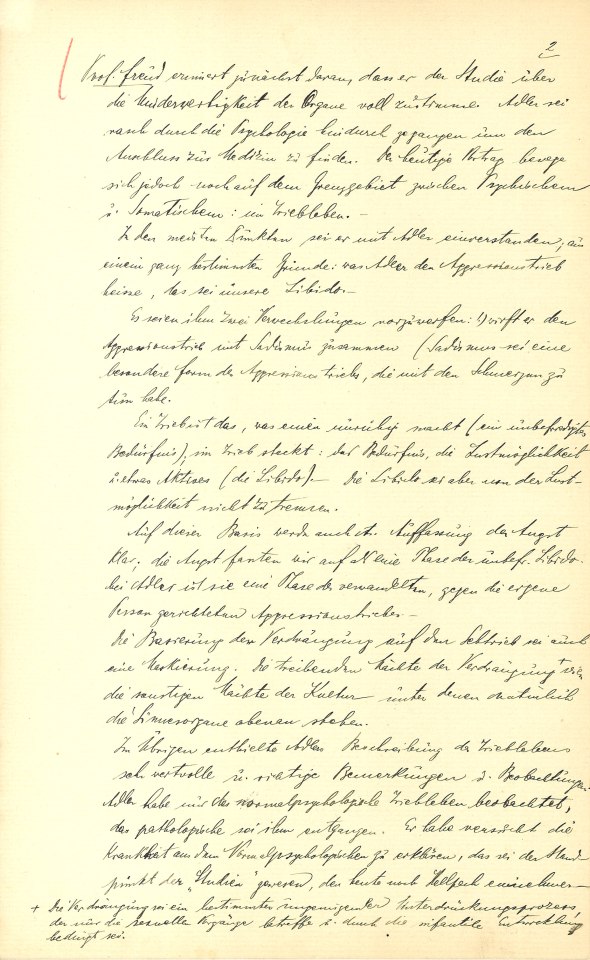 2
Prof. Freud erinnert zunächst daran, dass er der Studie über
die Minderwertigkeit der Organe voll zustimme. Adler sei
rasch durch die Psychologie hindurch gegangen um den
Anschluss zur Medizin zu finden. Der heutige Vortrag bewege
sich jedoch noch auf dem Grenzgebiet zwischen Psychischem
u. Somatischem: im Triebleben. –
In den meisten Punkten sei er mit Adler einverstanden, aus
einem ganz bestimmten Grunde: was Adler den Aggressionstrieb
heisse, das sei unsere Libido. –
Es seien ihm zwei Verwechslungen vorzuwerfen: 1) wirft er den
Aggressionstrieb mit Sadismus zusammen (Sadismus sei eine
besondere Form des Aggressionstriebs, die mit dem Schmerzen zu
tun habe.
Ein Trieb ist das, was einen unruhig macht (ein unbefriedigtes
Bedürfnis); im Trieb steckt: das Bedürfnis, die Lustmöglichkeit
u. etwas Aktives (die Libido). – Die Libido sei aber von der Lust-
möglichkeit nicht zu trennen.
Auf dieser Basis werde auch A. Auffassung der Angst
klar; die Angst fassten wir auf als eine Phase der unbefr. Libido.
bei Adler ist sie eine Phase des verwandelten, gegen die eigene
Person gerichteten Aggressionstriebes –
Die Basierung der Verdrängung auf den Sehtrieb sei auch
eine Markierung. Die treibenden Mächte der Verdrängung +
die sonstigen Mächte der Kultur unter denen natürlich
die Sinnesorgane obenan stehen.
Im Übrigen enthielte Adlers Beschreibung des Trieblebens
sehr wertvolle u. richtige Bemerkungen u. Beobachtungen.
Adler habe nur das normalpsychologische Triebleben beobachtet,
das pathologische sei ihm entgangen. Er habe versucht die
Krankheit aus dem Normalpsychologischen zu erklären, das sei der Stand-
punkt der "Studien" gewesen, den heute noch Hellpach einnehme –
+ Die Verdrängung sei ein bestimmter ungenügender Unterdrückungsprozess,
der nur die sexuellen Vorgänge betreffe u. durch die infantile Entwicklung
bedingt sei.